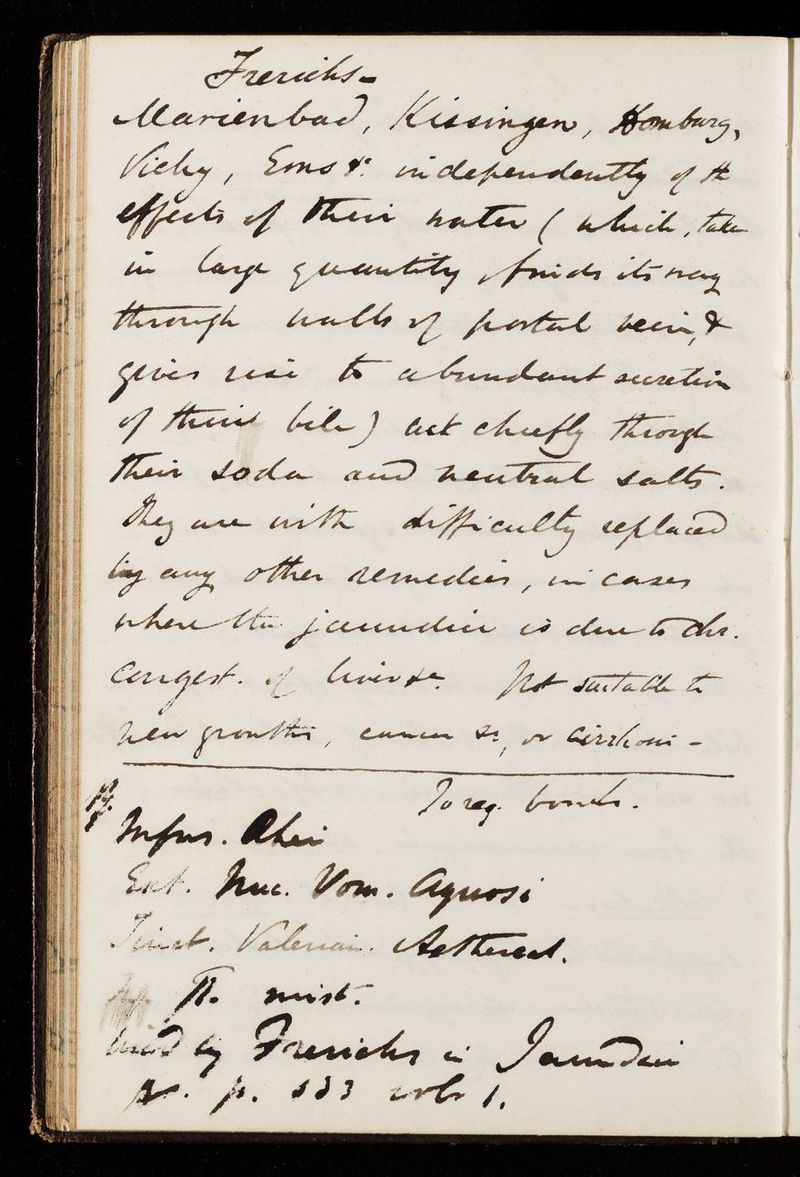 Frerichs -
Marienbad, Kissingen, Homburg,
Vichy, Ems &c independently of the
effects of their water (which, taken
in large quantity, finds its way
through walls of portal vein, &
gives rise to abundant secretion
of thin bile) act chiefly through
their soda and neutral salts.
They are with difficulty replaced
by any other remedies, in cases
where the jaundice is due to chr.
congest. of liver &c. Not suitable to
new growths, cancer &c, or cirrhosis -
To reg. bowels.
Infus. Rhei
Ext. Nuc. Vom. Aquosi
Tinct. Valerian. Aethereal.
ft. mist.
Used by Frerichs in Jaundice
p. 133 vol 1.